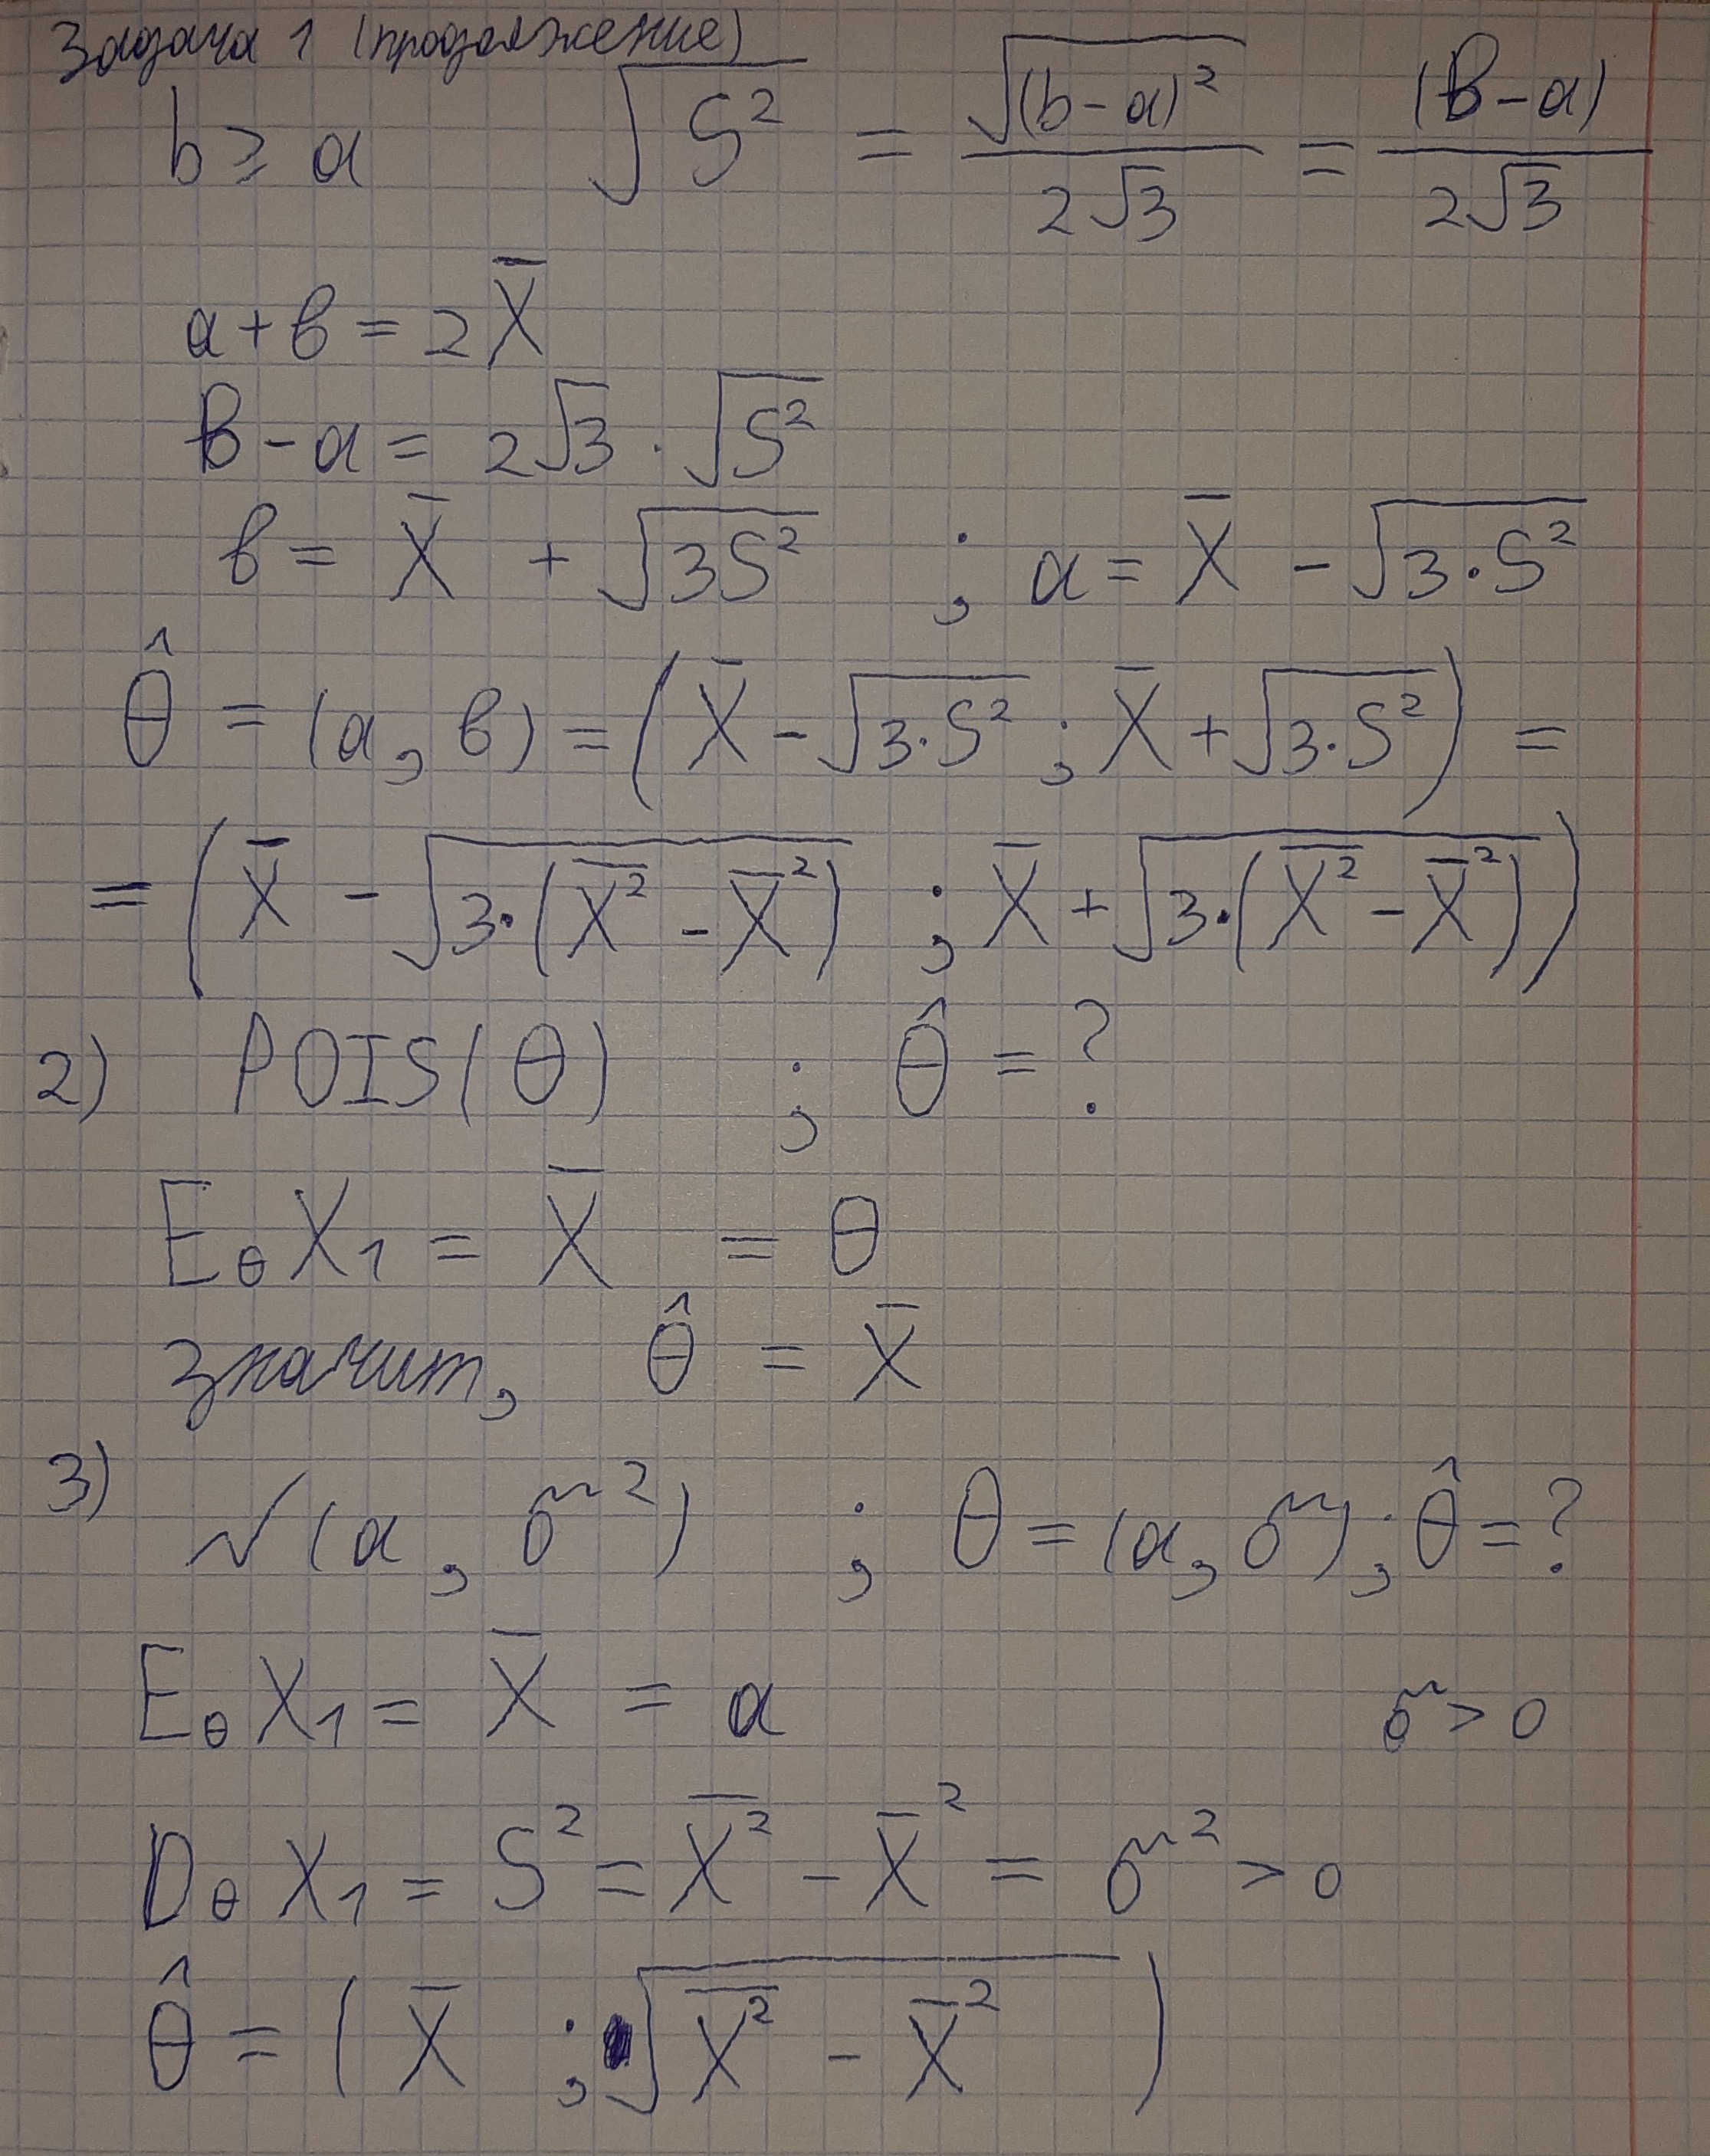 Задача 1 (продолжение)
b ≥ a √S² = √(b-a)² / 2√3 = (b-a) / 2√3
a+b = 2X̄
b-a = 2√3 · √S²
b = X̄ + √3S² ; a = X̄ - √3·S²
θ̂ = (a, b) = (X̄ - √3·S² ; X̄ + √3·S²) =
= (X̄ - √3·(X̅²̅ - X̄²) ; X̄ + √3·(X̅²̅ - X̄²))
2) POIS(θ) ; θ̂ = ?
E_θ X₁ = X̄ = θ
значит, θ̂ = X̄
3) N(a, σ²) ; θ = (a, σ) ; θ̂ = ?
E_θ X₁ = X̄ = a σ > 0
D_θ X₁ = S² = X̅²̅ - X̄² = σ² > 0
θ̂ = (X̄ ; √X̅²̅ - X̄²)